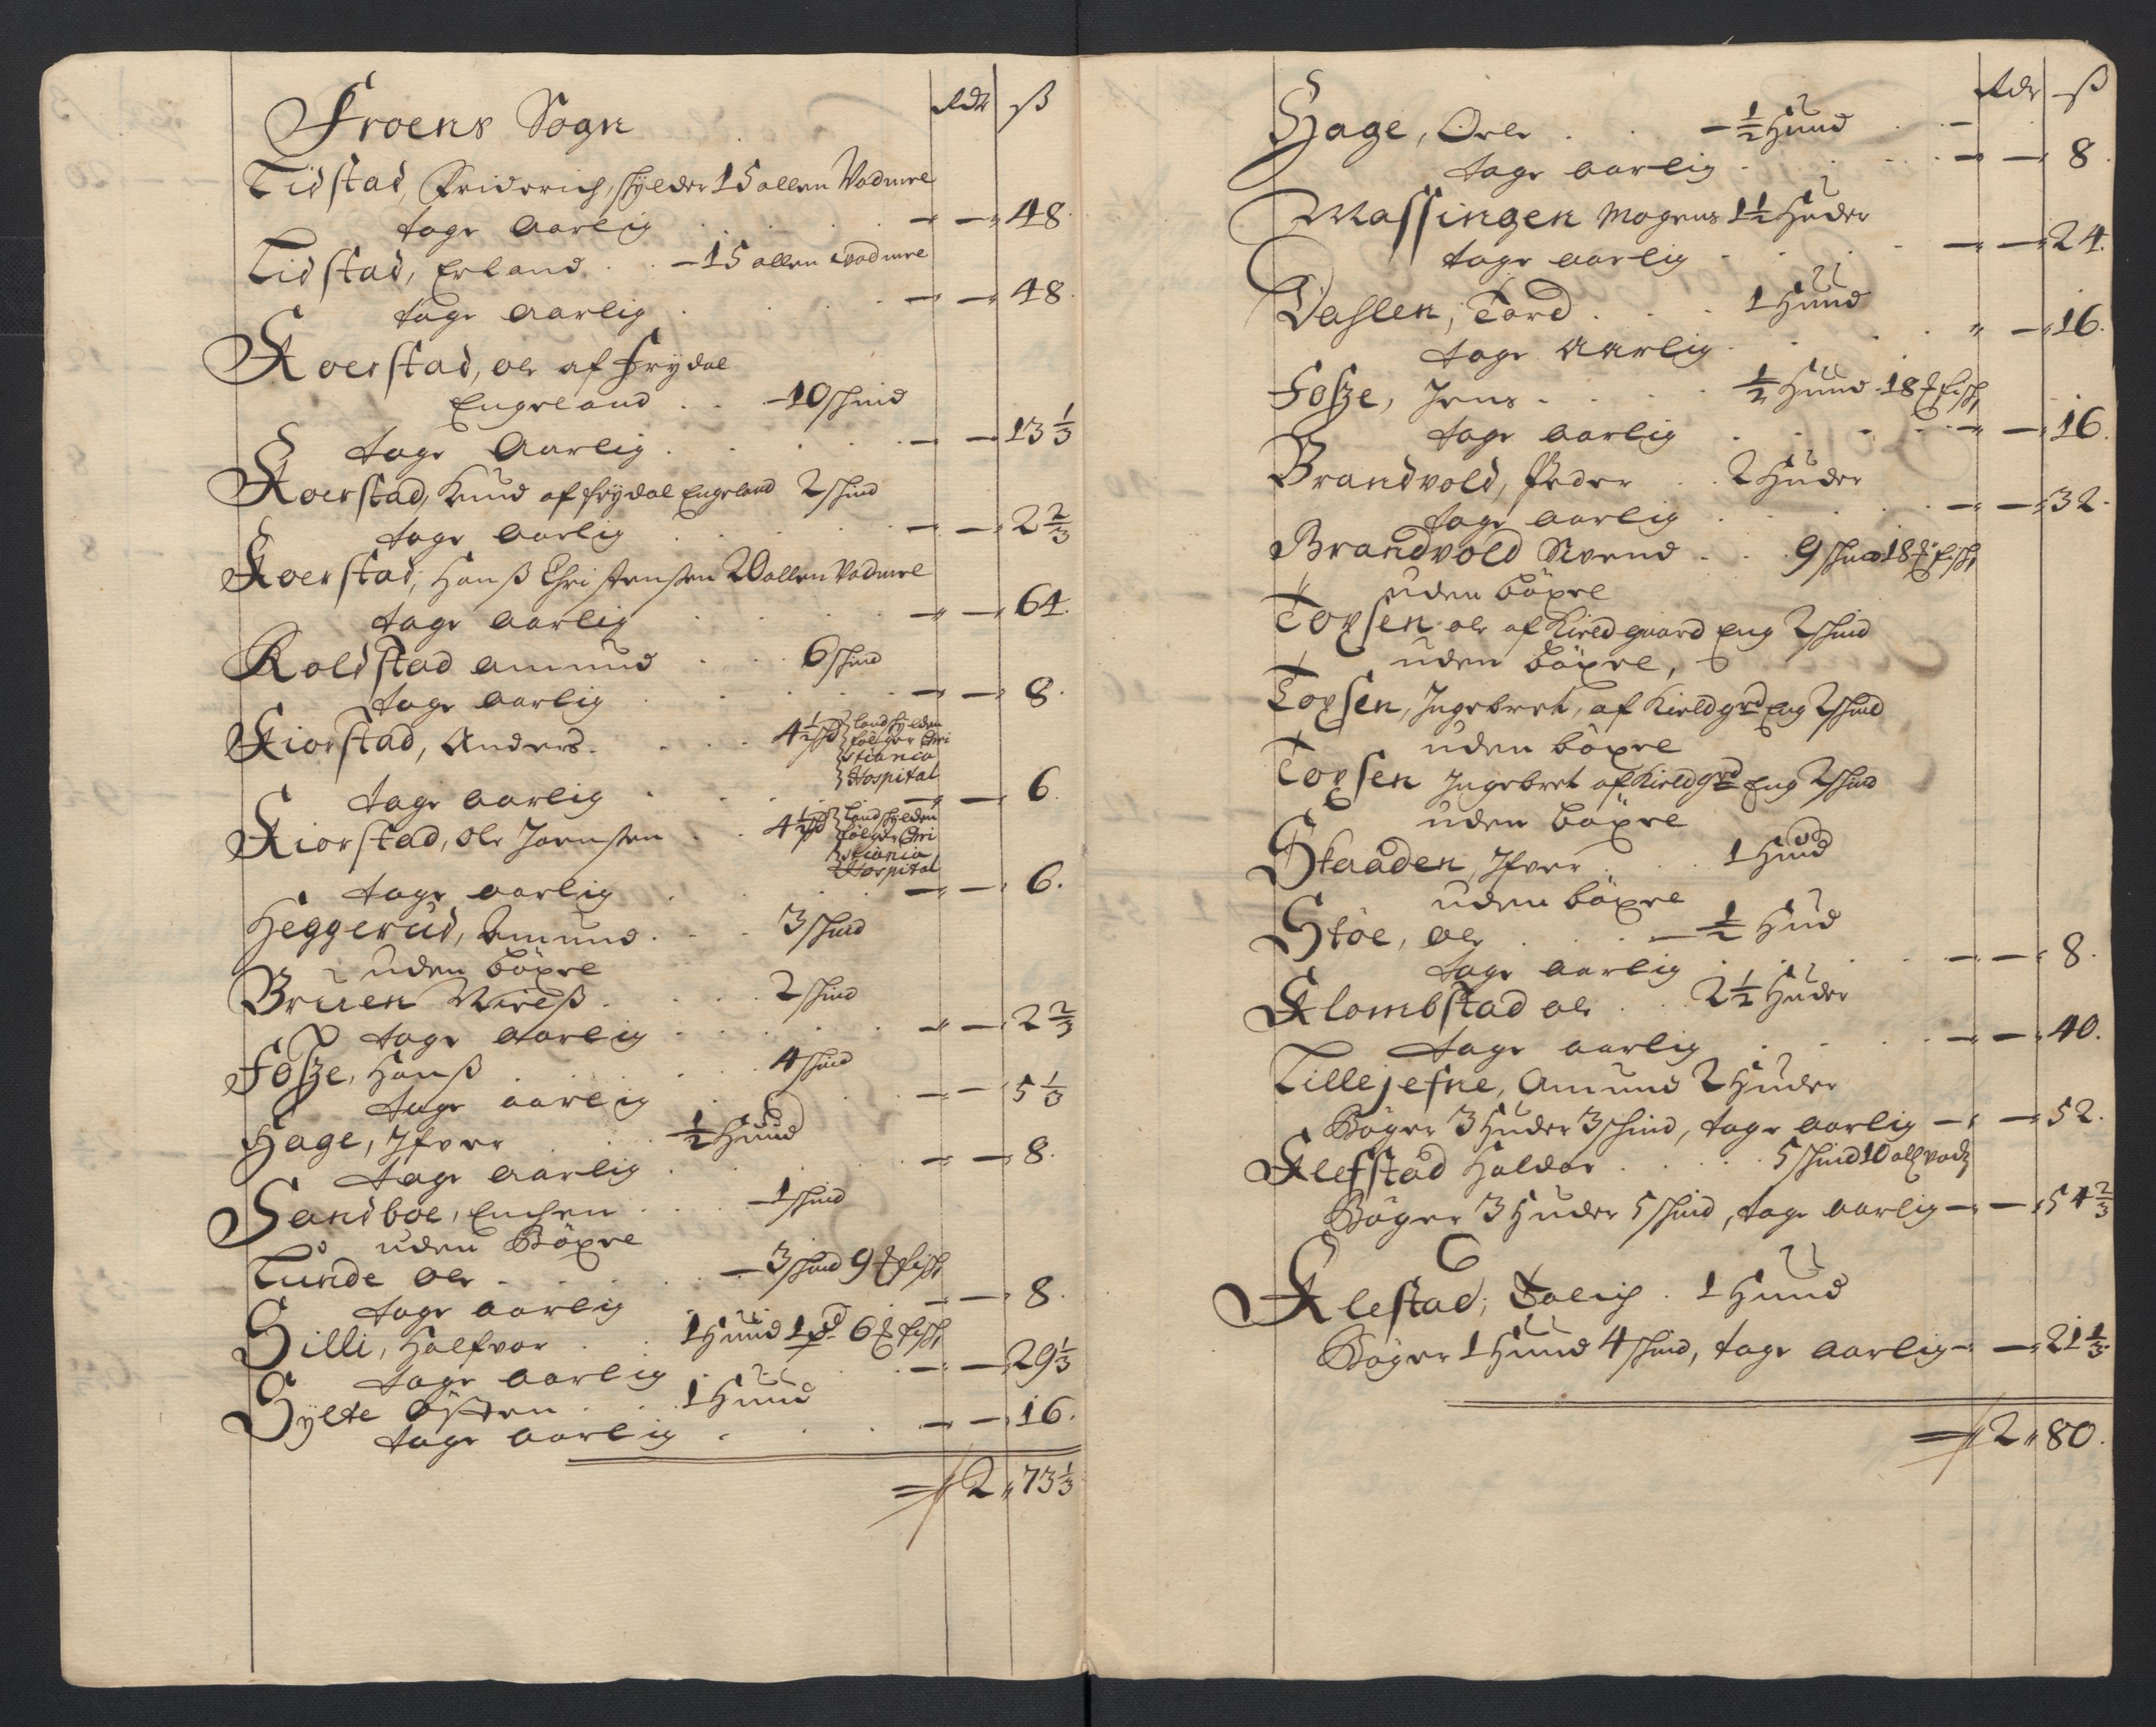 Rdr ß
Froens Sogn
Lidstad, Friderich, schylder 15 allen Vadmel
tage aarlig — — 48.
Lidstad, Erland — 15 allen vadmel
tage aarlig — — 48.
Koerstad, ole af frydal
Engeland — 10 schind
tage Aarlig — — 13 1/3
Koerstad, Knud af frydal Engeland 2 schind
tage aarlig — — 2 2/3
Koerstad, Hanß Christensen 20 allen Vadmel
tage aarlig — — 64.
Roldstad amund 6 schind
tage aarlig — — 8.
Kiorstad, Anders 4 1/2 schd landschylden
følger Chri
stiania
Hospital
tage aarlig — — 6
Kiorstad, Ole Joensen 4 1/2 schd landschylden
følger Chri
stiania
Hospital
tage aarlig — — 6.
Heggerud, Amund 3 schind
uden böxel
Bruen 2 schind
tage aarlig — — 2 2/3
Foße, Hanß 4 schind
tage aarlig — — 5 1/3
Hage, Ifver 1/2 Huud
tage aarlig — — 8.
Sandboe, Enchen — 1 schind
uden Böxel
Lunde ole — 3 schind 9 ℔ fisch
tage aarlig — — 8.
Silli, Halfvor 1 Huud 1 pd 6 ℔ fisch
tage aarlig — — 29 1/3
Sylte östen 1 Huud
tage aarlig — — 16.
2 73 1/3
Rdr ß
Hage, Ole — 1/2 Huud —
tage aarlig — — 8.
Massingen Mogens 1 1/2 Huder
tage aarlig — — 24.
Dahlen, Tord 1 Huud
tage aarlig — 16.
Foße, Jens 1/2 Huud 18 ℔ fisch
tage aarlig — — 16.
Brandvold, Peder 2 Huder
tage aarlig — — 32.
Brandvold Svend 9 schind 18 ℔ fisch
uden böxel
Toxsen ole af Kieldgaard Eng 2 schind
uden böxel,
Toxsen, Ingebret, af Kieldgrd Eng 2 schind
uden böxel
Toxsen Ingebret af Kieldgrd Eng 2 schind
uden böxel
Staaden, Ifver 1 Huud
uden böxel
Stöe, ole — 1/2 Hud
tage aarlig — — 8.
Klombstad ole 2 1/2 Huder
tage aarlig — — 40.
Lillejefne, Amund 2 Huder
Böger 3 Huder 3 schind, tage aarlig — — 52.
Klefstad Haldor 5 schind 10 all vadm
Böger 3 Huder 5 schind, tage aarlig — — 54 2/3
Klestad, 1 Huud
Böger 1 Huud 4 schind, tage aarlig — — 21 1/3
2 80.